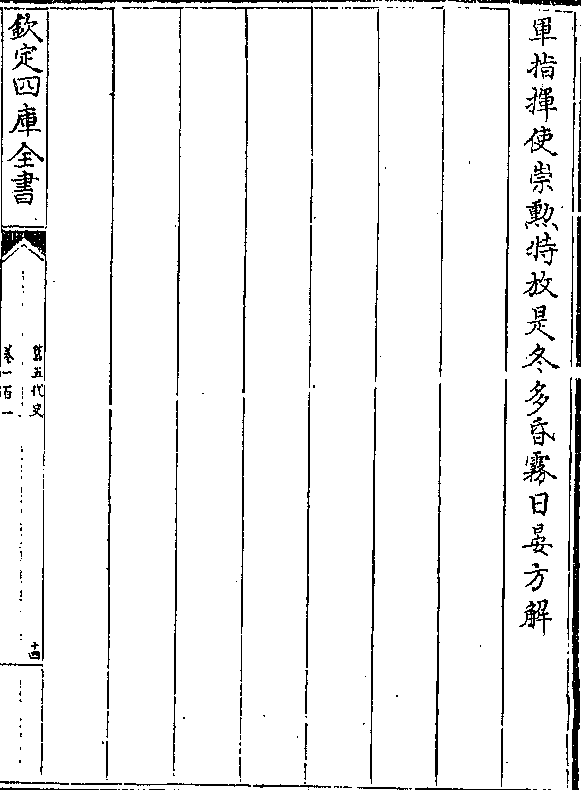 軍指揮使崇勲特放是冬多昏霧日晏方解
欽定四庫全書
舊五代史
卷一百一
十四